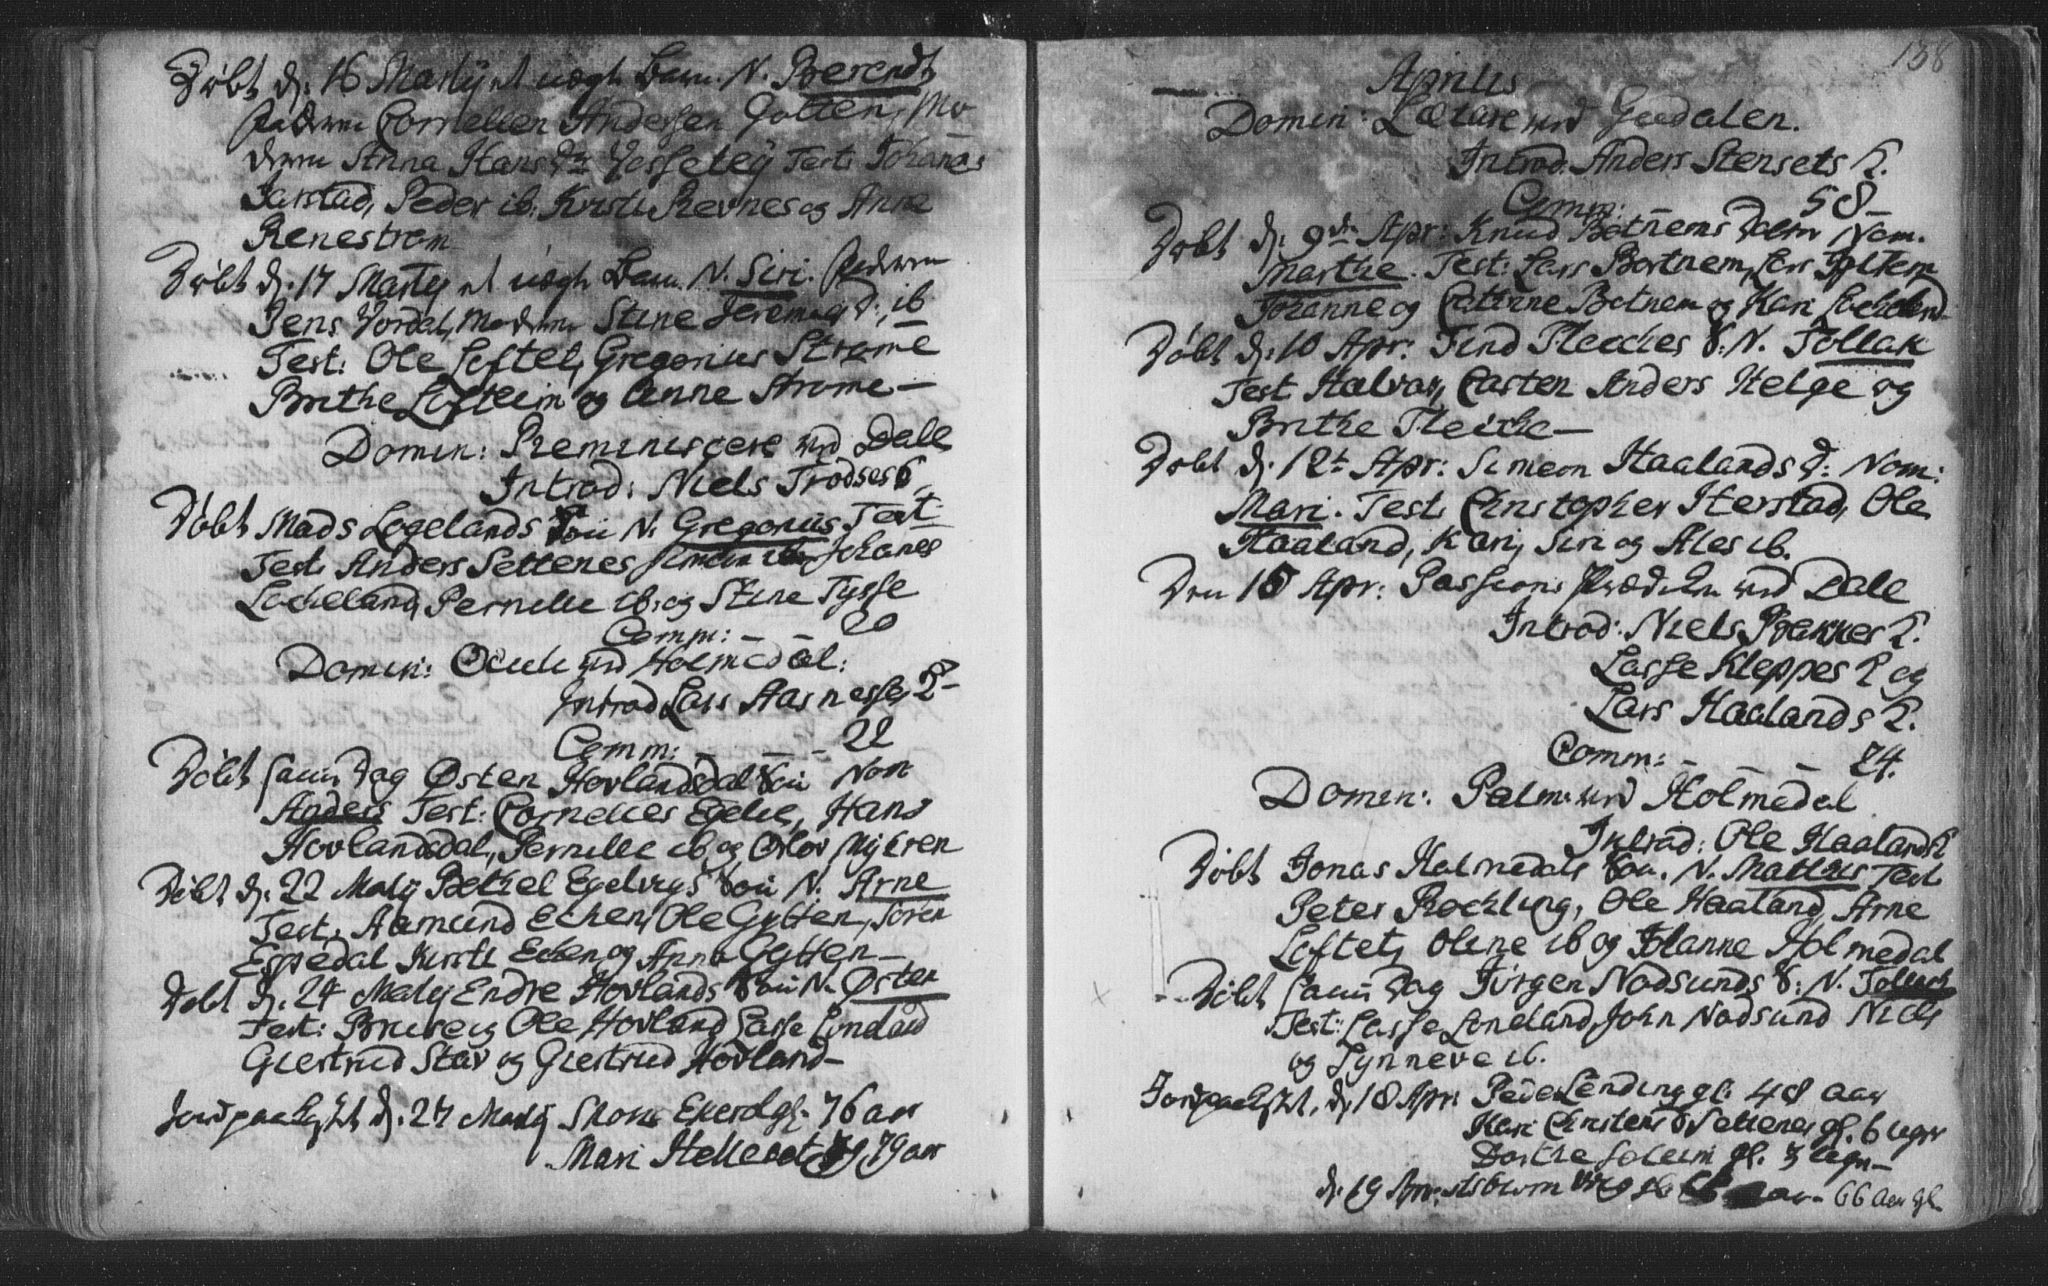 Døbt d: 16 Martij et uægte Barn. N. Berendt
Faderen Cornelien Andersen Gøtten, Mo
deren Anna Hans dr Test: Johanes
Jarstad, Peder ib: Kirsti Revnes og Anna
Renestrøm
Døbt d: 17 Martij et uægte Barn. N. Siri. Faderen
Jens Vordal, Moderen Stine Jerems d:, ib
Test: Ole Loftet, Gregorius Strømme
Brithe Lofteim og Anne Strømme —
Domin: Reminiscere ved Dale
Introd: Niels Trodses
Døbt Mads Løgelands Søn N: Gregorius Test:
Test: Anders Settenes Simon ib Johanes
Locheland, Pernille ib. og Stine Tysse
Comm: — — 20
Domin: Oculi ved Holmedal:
Introd Lars Aasnesse K —
Comm: — — 22
Døbt samme Dag Østen Hovlandsdal Søn Nom
Anders Test: Cornelies Egelie, Hans
Hovlandsdal, Pernille ib og Olov Myhren
Døbt d: 22 Martij Bethel Egelvigs Søn N. Arne
Test: Aamund Echen, Ole Gytten, Sören
Espedal Kirsti Echen og Anna Gytten —
Døbt d. 24 Martij Endre Hovlands Søn N. Østen
Test: Ole Hovland Lasse
Giertrud Stav og Giertrud Hovland —
Jordpaakast d. 27 Martij 76 aar
Mari 79 aar
138
Aprilis
Domin: Lætare ved Guddalen.
Introd: Anders Stensets K.
Comm: — 58 —
Døbt d: 9de Apr: Knud Botnems Datter Nom.
Marthe. Test: Lars Bortnem, Lars
Johanne og Catrine Botnem og Kari Locheland
Døbt d: 10 Apr: Find Fleches S: N. Tollak
Test Halvar, Carsten Anders Helge og
Brithe Fleche —
Døbt d. 12t Apr: Simeon Haalands d: Nom:
Mari. Test: Christopher Herstad, Ole
Haaland, Kari, Siri og Ales ib.
Den 15 Apr: Passions Prædiken ved Dale
Introd: Niels Bakkes K.
Lasse Kleppes K og
Lars Haalands K.
Comm: — — — 24.
Domin: Palm: ved Holmedal
Introd: Ole Haalands K
Døbt Jonas Holmedals Søn. N. Mathies Test
Peter Rochling, Ole Haaland, Arne
Loftet, Oline ib og Johanne Holmedal
Døbt samme Dag Jörgen Nodsunds S: N. Tollach
Test: Lasse Loneland, John Nodsund Niels
og Synneve ib.
Jordpaakast, d. 18 Apr: Peder Lending gl: 48 aar
Kari Christens d Settenes gl. 6 uger
Dorthe Soleim gl. 3 uger —
d. 19 Apr: 66 Aar gl